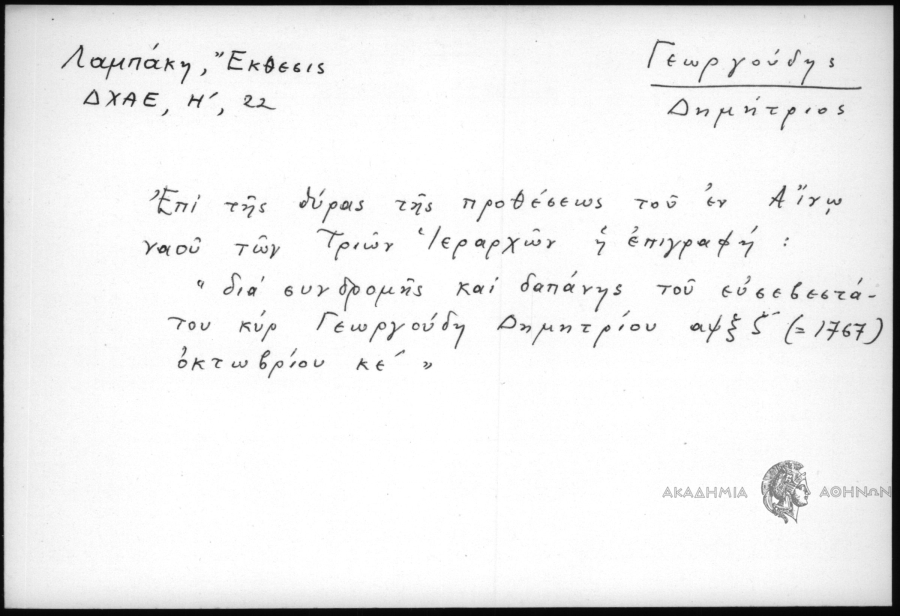 Λαμπάκη, Ἔκθεσις
ΔΧΑΕ, Η΄, 22
Γεωργούδης
Δημήτριος
Ἐπί τῆς θύρας τῆς προθέσεως τοῦ ἐν Αἴνῳ
ναοῦ τῶν Τριῶν Ἱεραρχῶν ἡ ἐπιγραφή :
" διά συνδρομῆς καί δαπάνης τοῦ εὐσεβεστά-
του κύρ Γεωργούδη Δημητρίου αψξζ΄ (=1767)
ὀκτωβρίου κε΄ "
ΑΚΑΔΗΜΙΑ ΑΘΗΝΩΝ